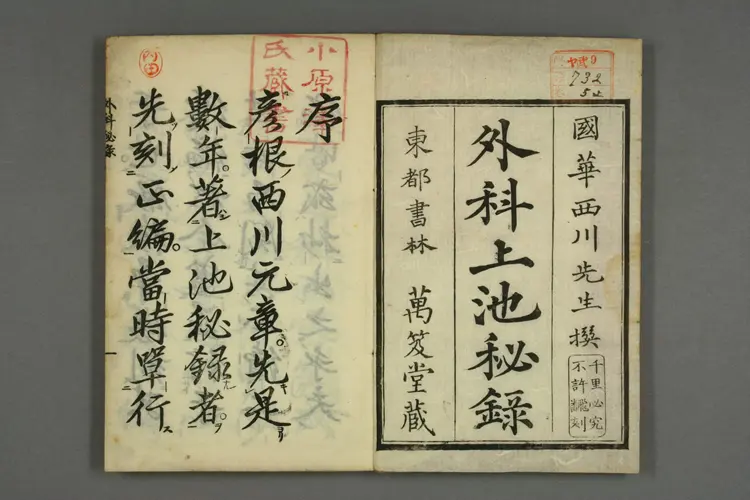 國華西川先生撰
千里必究
不許飜刻
外科上池秘錄
東都書林 萬笈堂藏
732
54
小原
氏藏書
序
彥根西川元章先是
數年著上池秘録者
先刻正編當時單行
外科秘录
一